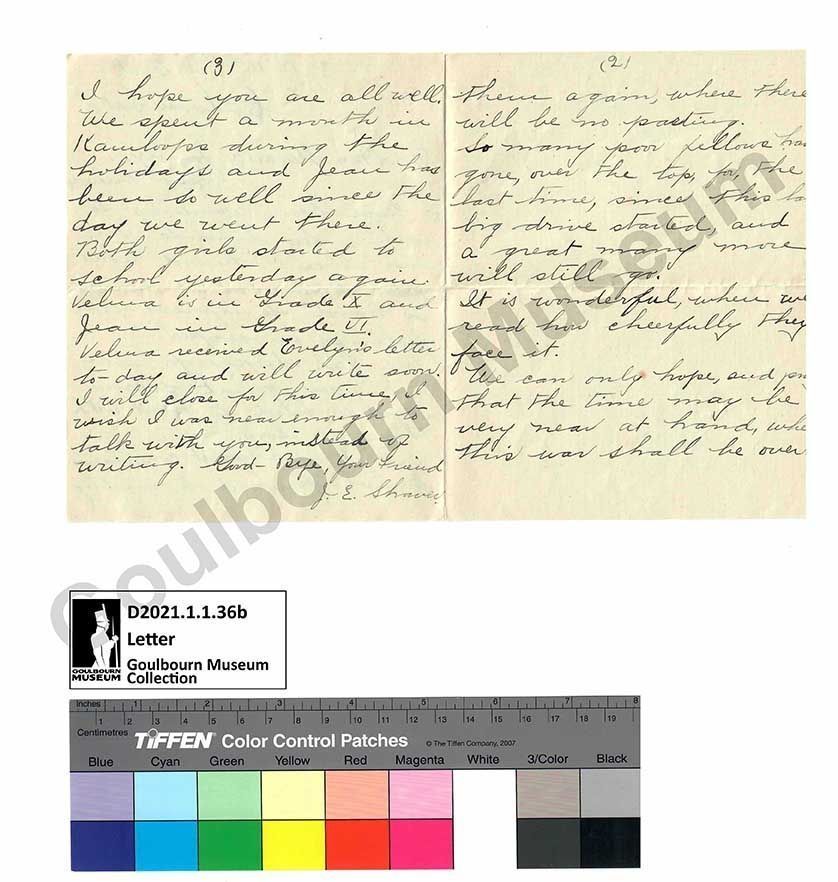 (3)
I hope you are all well.
We spent a month in
Kamloops during the
holidays and Jean has
been so well since the
day we went there.
Both girls started to
school yesterday again.
Velma is in Grade X and
Jean in Grade VI.
Velma received Evelyn's letter
to-day and will write soon.
I will close for this time, I
wish I was near enough to
talk with you, instead of
writing. Good-Bye, Your Friend
J. E. Shaver
(2)
them again, where there
will be no parting.
So many poor fellows hav
gone, over the top, for, the
last time, since this la
big drive started, and
a great many more
will still go.
It is wonderful, when we
read how cheerfully they
face it.
We can only hope, and pra
that the time may be
very near at hand, whe
this war shall be over
Goulbourn Museum
GOULBOURN
MUSEUM
D2021.1.1.36b
Letter
Goulbourn Museum
Collection
Inches 1 2 3 4 5 6 7 8
Centimetres 1 2 3 4 5 6 7 8 9 10 11 12 13 14 15 16 17 18 19
TIFFEN Color Control Patches © The Tiffen Company, 2007
Blue Cyan Green Yellow Red Magenta White 3/Color Black